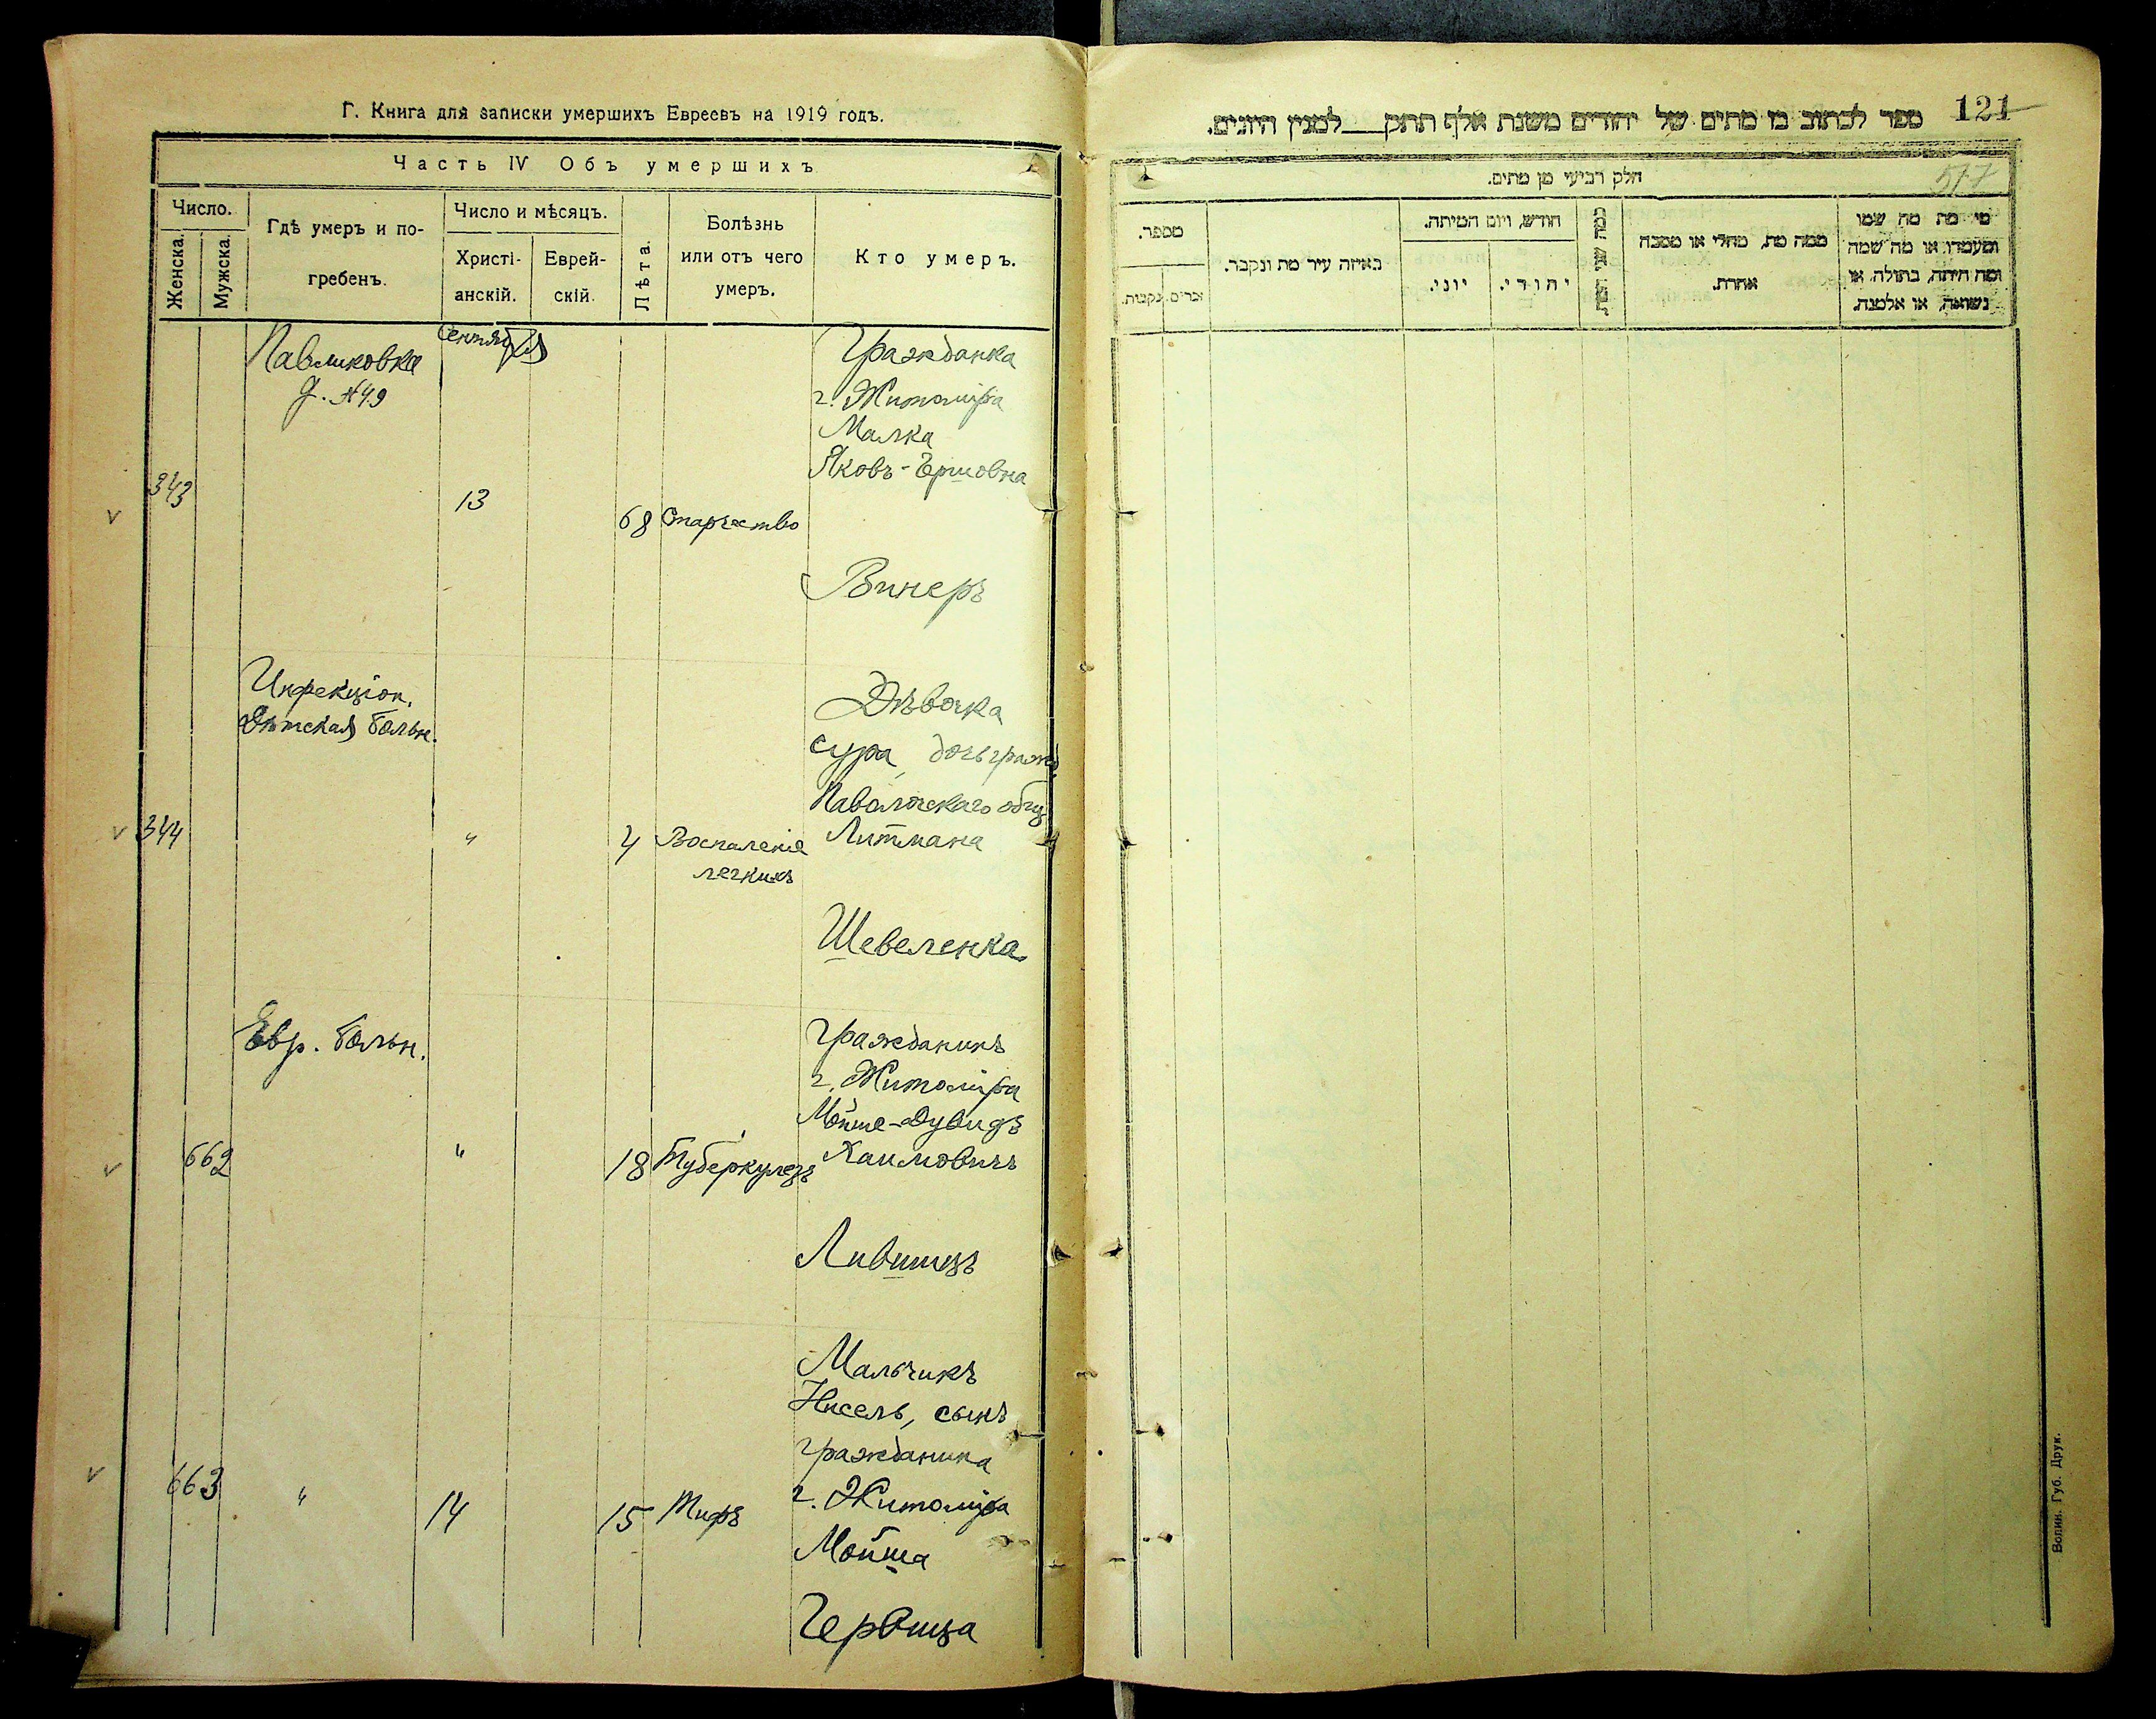 Г. Книга для записки умершихъ Евреевъ на 1919 годъ.
Часть IV Объ умершихъ
Число.
Женска.
Мужска.
Гдѣ умеръ и по-
гребенъ.
Число и мѣсяцъ.
Христі-
анскій.
Еврей-
скій.
Лѣта.
Болѣзнь
или отъ чего
умеръ.
Кто умеръ.
Павликовка
д. №49
Сентября
Гражданка
г. Житоміра
Малка
Яковъ-Гершовна
343
13
68
Старчество
Винеръ
Инфекціон.
Дѣтская больн.
Дѣвочка
Сура, дочь гражд.
Паволочскаго общ.
344
"
4
Воспаленіе
легкихъ
Литмана
Шевеленка
Евр. больн.
Гражданинъ
г. Житоміра
Мойше-Дувидъ
662
"
18
Туберкулезъ
Хаимовичъ
Лившицъ
Мальчикъ
Нисель, сынъ
гражданина
663
"
14
15
Тифъ
г. Житоміра
Мойша
Червица
121
ספר לכתוב מן מתים של יהודים משנת אלף תתק___למנין היונים.
517
חלק רביעי מן מתים.
מספר.
זכרים.
נקבות.
באיזה עיר מת ונקבר.
חודש, ויום המיתה.
יוני.
יהודי.
ממה מת, מחלי או מסבה
אחרת.
מי מת מה שמו
ומעמדו או מה שמה
ומה היתה, בתולה או
נשואה, או אלמנה.
Волин. Губ. Друк.